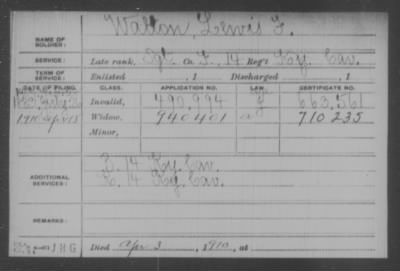 NAME OF SOLDIER: Walton, Lewis F.
SERVICE: Late rank, Sgt Co. F, 14 Reg't Ky. Cav.
TERM OF SERVICE: Enlisted , 1 Discharged , 1
DATE OF FILING. CLASS. APPLICATION NO. LAW. CERTIFICATE NO.
Invalid, 490,994 663,561
1910 Apr 15 Widow, 940401 710235
Minor,
ADDITIONAL SERVICES: 14 Ky. Cav.
14 Ky. Cav.
REMARKS:
JHG Died Apr 3, 1910, at